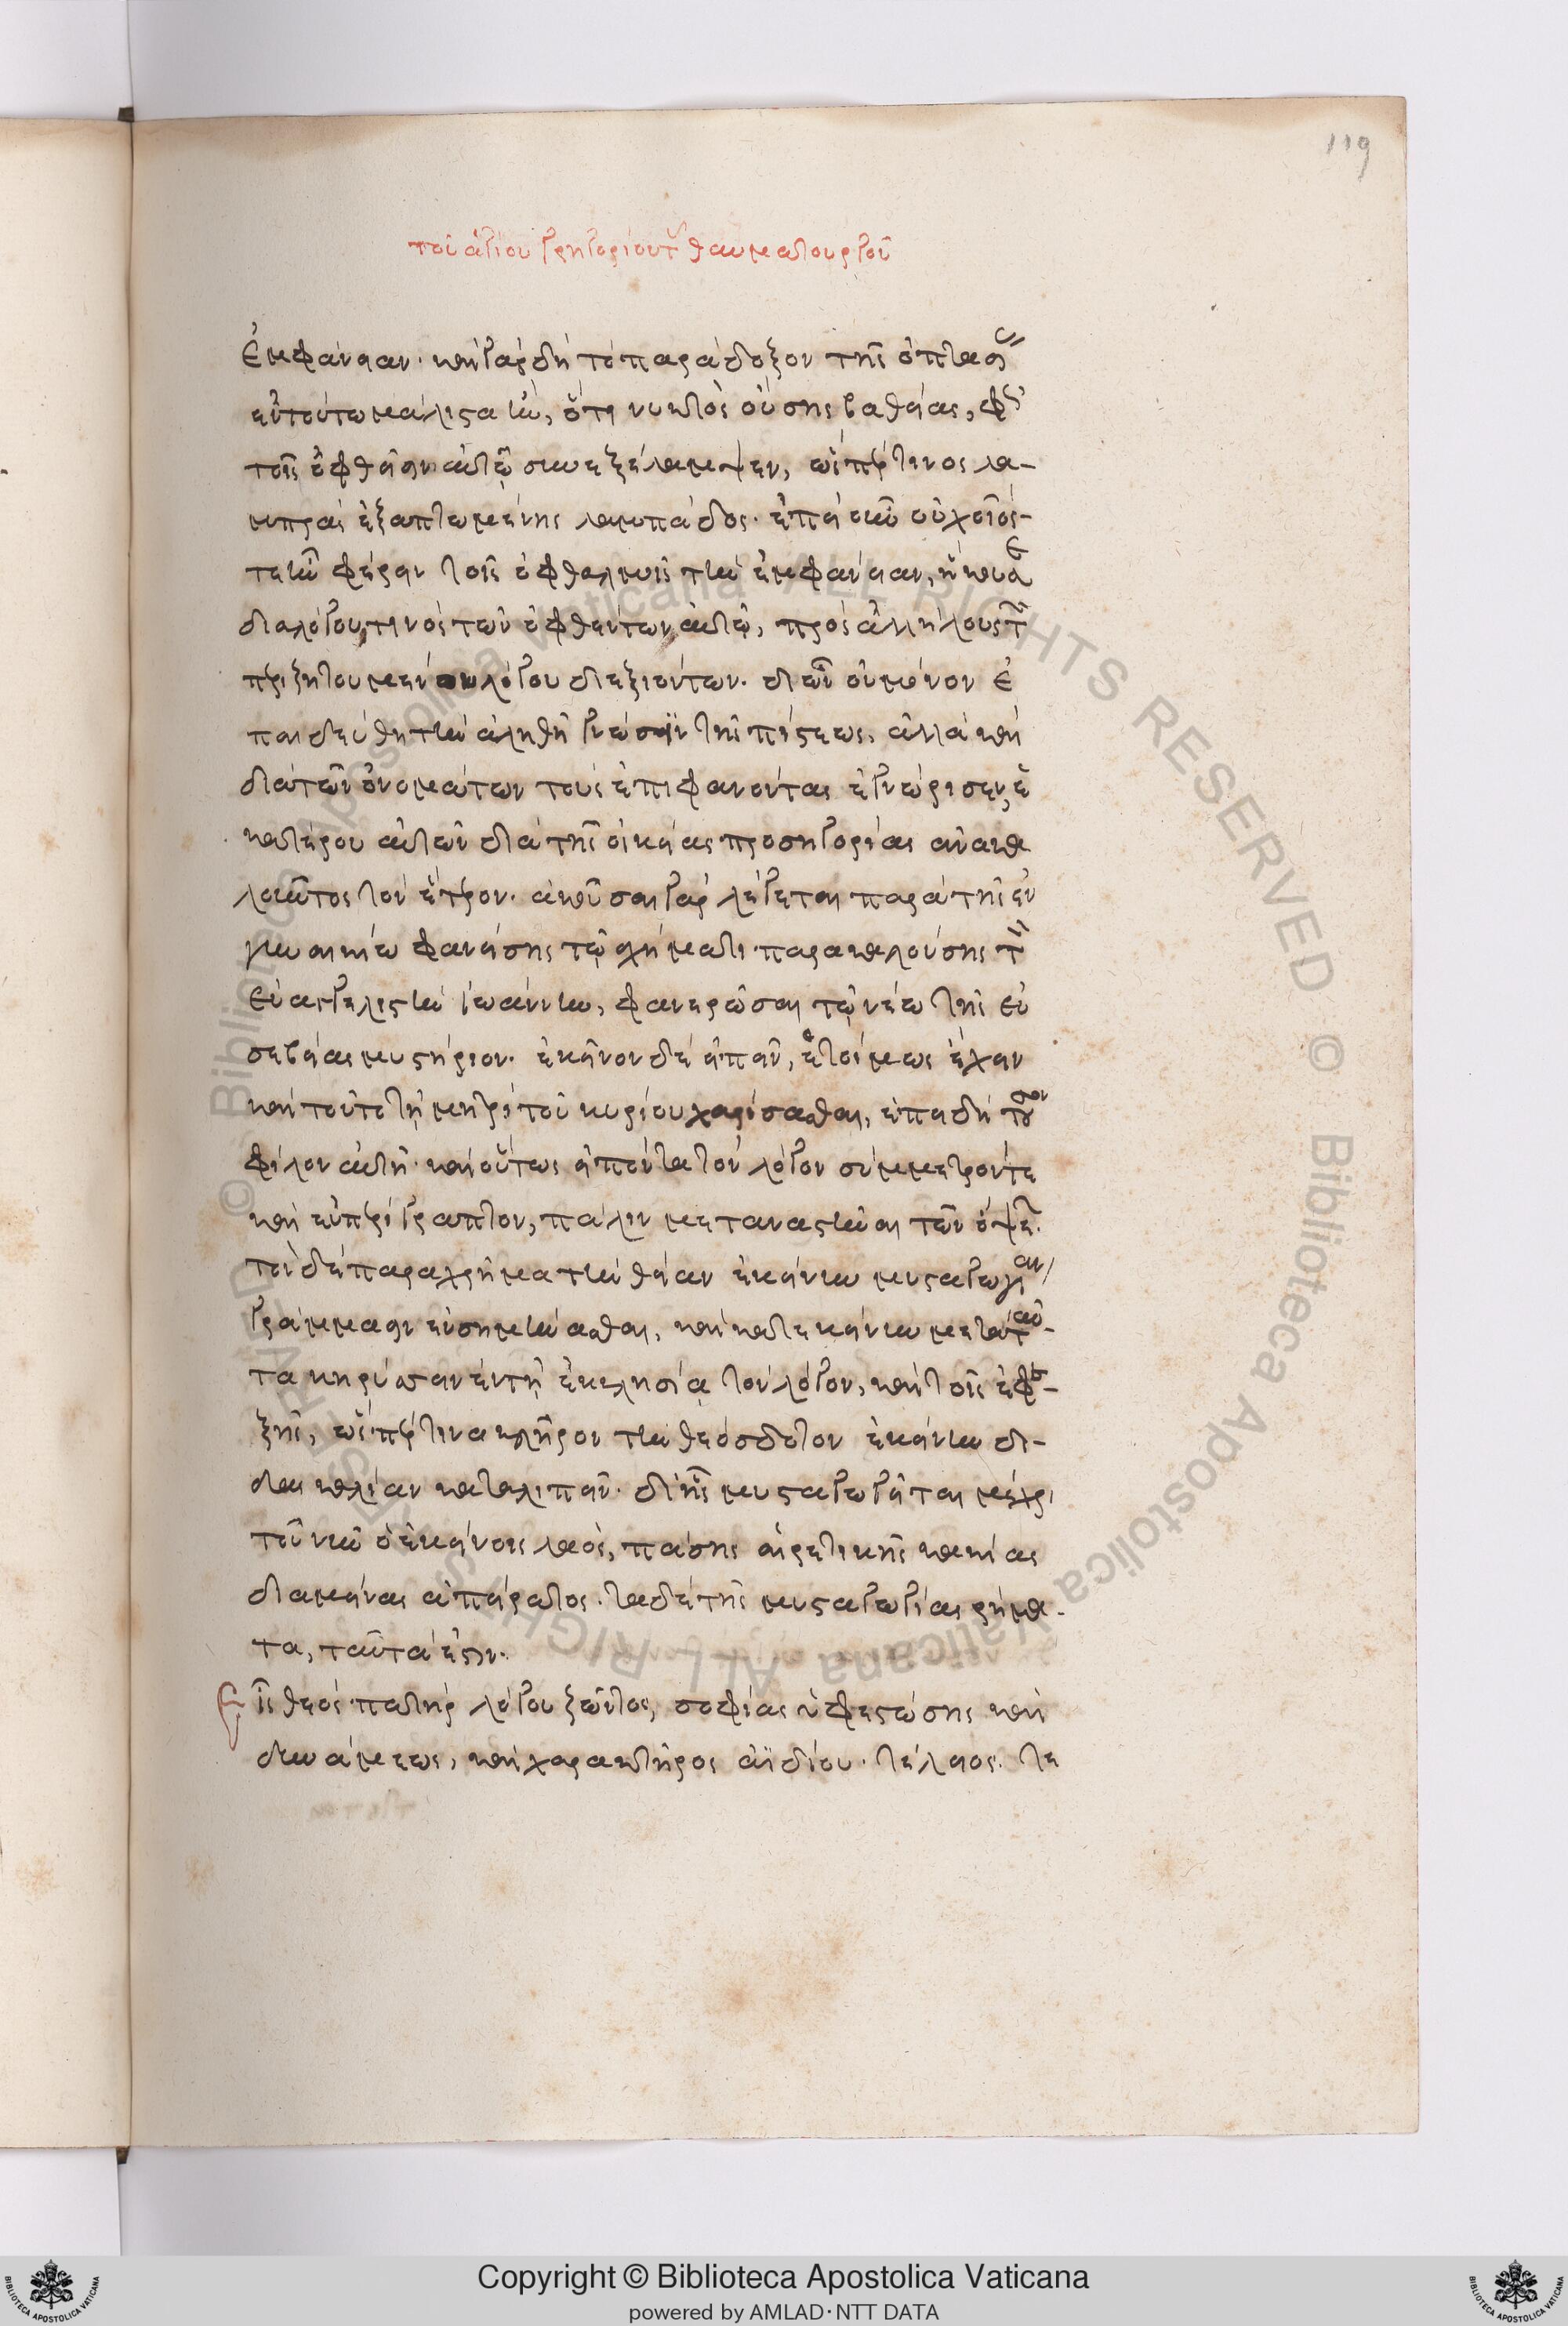 119
τοῦ ἁγίου γρηγορίου τοῦ θαυματουργοῦ
ἐμφάνειαν. καὶ γὰρ δὴ τὸ παράδοξον τῆς ὀπτασίας
ἐν τούτω μάλιστα ἦν, ὅτι νυκτὸς οὔσης βαθείας, φῶς
τοῖς ὀφθεῖσιν αὐτῶ συνεξέλαμψεν, ὥσπερ τινος λα-
μπρᾶς ἐξαπτωμένης λαμπάδος. ἐπεὶ οὖν οὐχ οἷός-
τε ἦν φέρειν τοῖς ὀφθαλμοῖς τὴν ἐμφάνειαν, ἤκουσε
διαλόγου τινὸς τῶν ὀφθέντων αὐτῶ, πρὸς ἀλλήλους τὸν
περι ζητουμένου λόγου διεξιόντων. δι ὧν οὐ μόνον ἐ
παιδεύθη τὴν ἀληθῆ γνῶσιν τῆς πίστεως, ἀλλὰ καὶ
διὰ τῶν ὀνομάτων τοὺς ἐπιφανέντας ἐγνώρισεν, ἑ
κατέρου αὐτῶν διὰ τῆς οἰκείας προσηγορίας ἀνακα
λοῦντος τὸν ἕτερον. ἀκοῦσαι γὰρ λέγεται παρὰ τῆς ἐν
γυναικίω φανείσης τῶ σχήματι παρακαλούσης τὸν
εὐαγγελιστὴν ἰωάννην, φανερῶσαι τῶ νέω τῆς εὐ
σεβείας μυστήριον. ἐκεῖνον δὲ εἰπεῖν, ἑτοίμως ἔχειν
καὶ τοῦτο τῆ μητρὶ τοῦ κυρίου χαρίσασθαι, ἐπειδὴ τοῦτον
φίλον αὐτῆ. καὶ οὕτως εἰπόντα τὸν λόγον σύμμετρόν τε
καὶ εὐπερίγραπτον, πάλιν μεταναστῆναι τῶν ὄψεων.
τὸν δὲ παραχρῆμα τὴν θείαν ἐκείνην μυσταγωγίαν
γράμμασιν ἐνσημήνασθαι, καὶ κατ ἐκείνην μετὰ ταῦ-
τα κηρύττειν ἐν τῆ ἐκκλησία τὸν λόγον, καὶ τοῖς ἐφ-
ξῆς, ὥσπερ τινα κλῆρον τὴν θεόσδοτον ἐκείνην δι-
δασκαλίαν καταλιπεῖν. δι ἧς μυσταγωγεῖται μέχρι
τοῦ νῦν ὁ ἐκείνοις λαὸς, πάσης αἱρετικῆς κακίας
διαμείνας ἀπείρατος. τὰ δὲ τῆς μυσταγωγίας ρήμα-
τα, ταῦτά ἐστιν.
Εἷς θεὸς πατὴρ λόγου ζῶντος, σοφίας ὑφεστώσης καὶ
δυνάμεως, καὶ χαρακτῆρος ἀϊδίου. τέλειος. τε
Copyright © Biblioteca Apostolica Vaticana
powered by AMLAD·NTT DATA